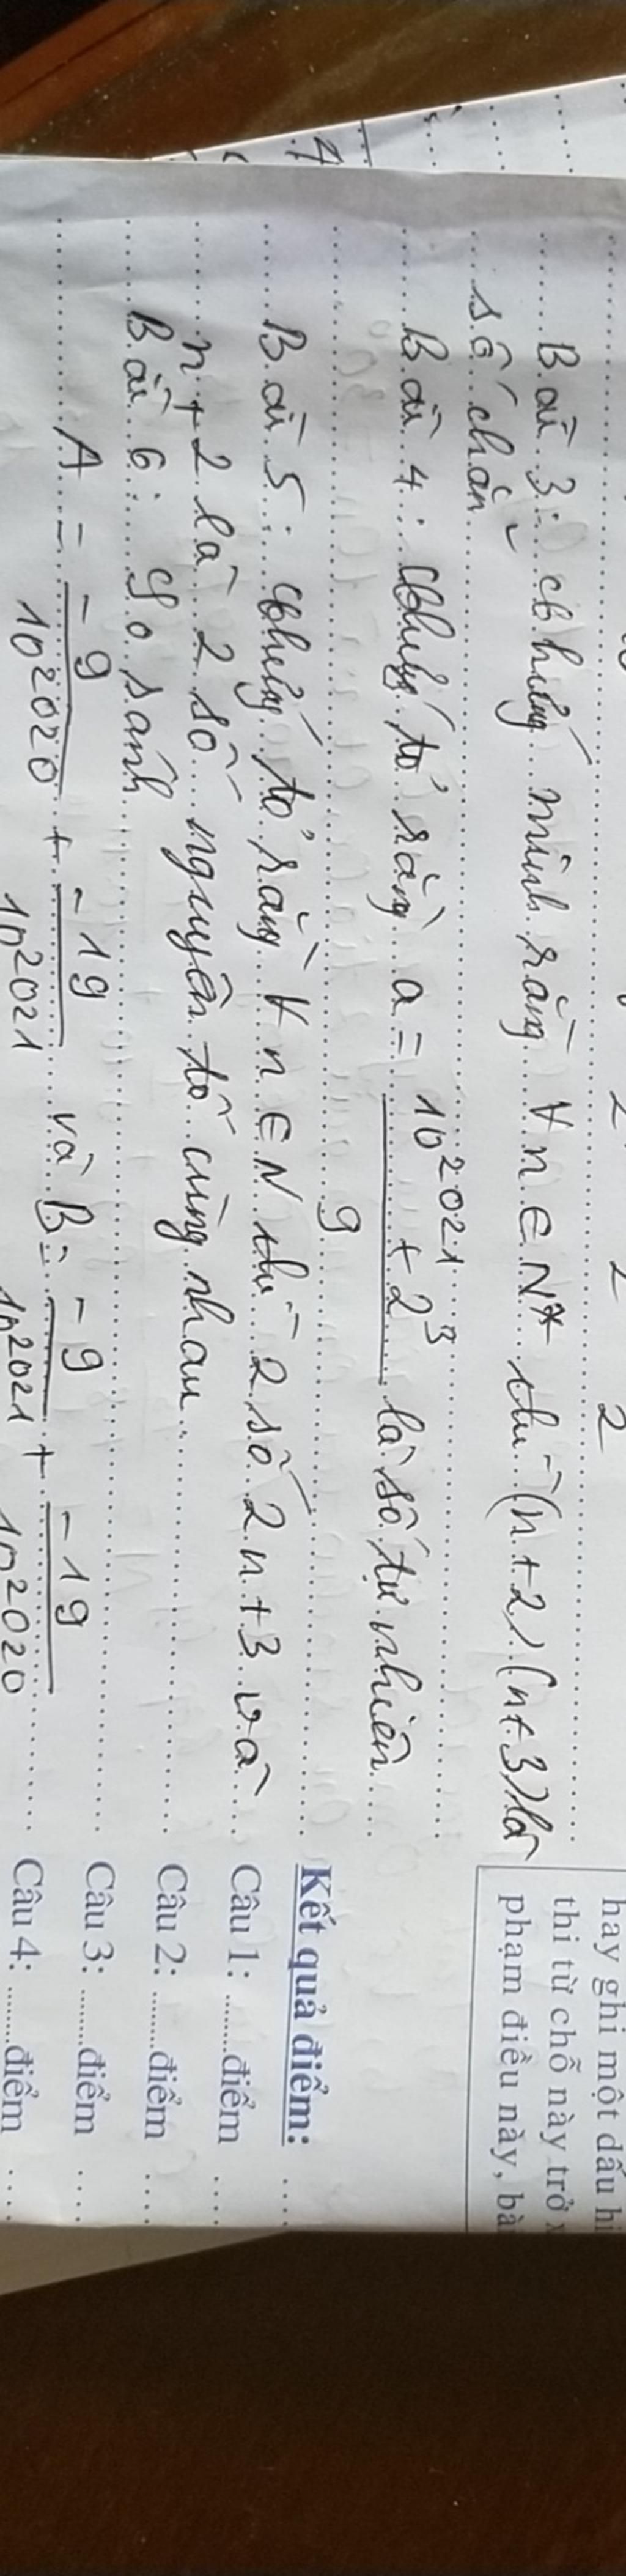 2 2 2
Bài 3: chứng minh rằng ∀ n ∈ N* thì (n+2).(n+3) là
số chẵn
Bài 4: Chứng tỏ rằng a = \frac{10^{2021} + 2^3}{9} là số tự nhiên
Bài 5: Chứng tỏ rằng ∀ n ∈ N thì 2 số 2n+3 và
n+2 là 2 số nguyên tố cùng nhau
Bài 6: So sánh
A = \frac{-9}{10^{2020}} + \frac{-19}{10^{2021}} và B = \frac{-9}{10^{2021}} + \frac{-19}{10^{2020}}
hay ghi một dấu hi
thi từ chỗ này trở
phạm điều này, bà
Kết quả điểm:
Câu 1: ........điểm
Câu 2: ........điểm
Câu 3: ........điểm
Câu 4: ........điểm